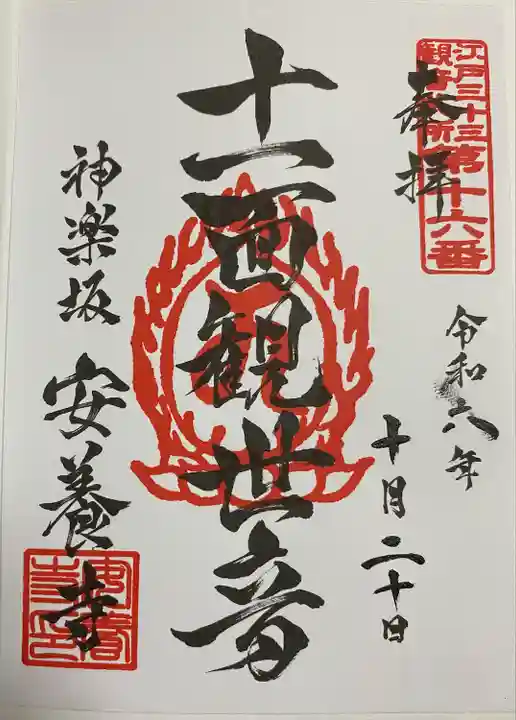 江戸三十三
観音札所
第十六番
奉拝
令和六年
十月二十日
十一面観世音
神楽坂
安養寺